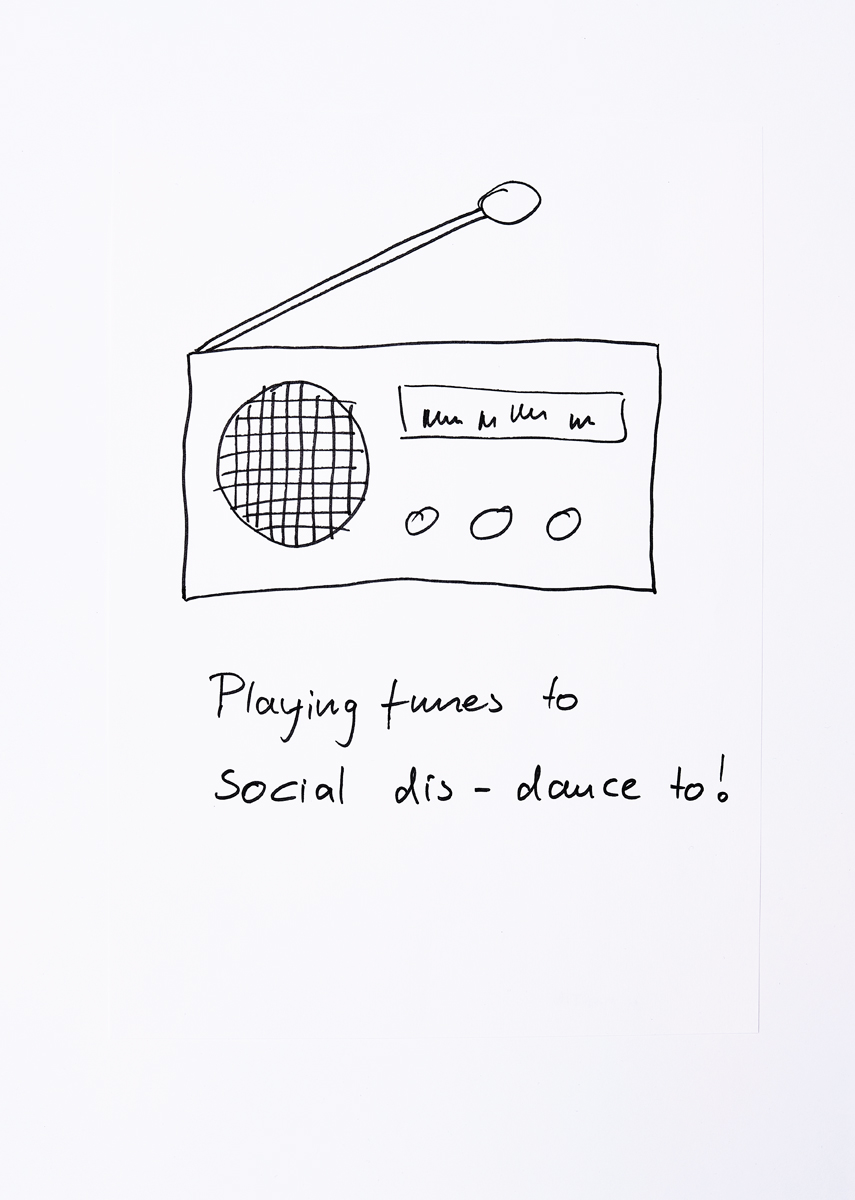 Playing tunes to
social dis - dance to!